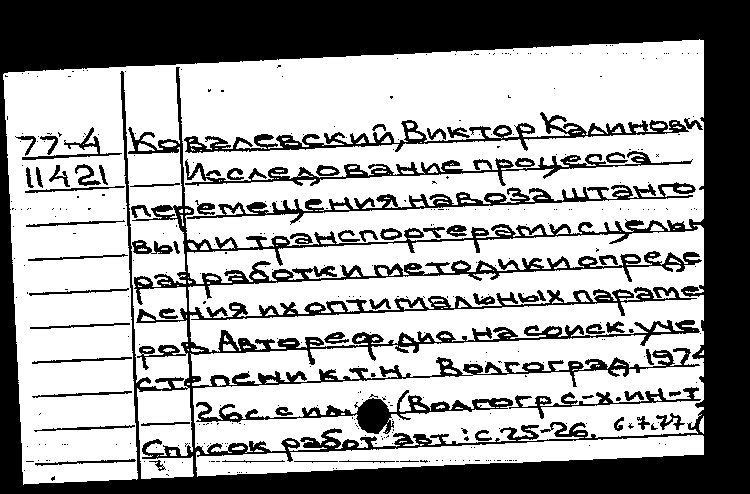 77-4 Ковалевский, Виктор Калинови
11421 Исследование процесса
перемещения навоза штанго-
выми транспортерами с целью
разработки методики опреде
ления их оптимальных параме
ров. Автореф. дис. на соиск. учен
степени к.т.н. Волгоград, 1974
26с. с ил. (Волгогр. с.-х. ин-т)
Список работ авт.: с. 25-26. 6.7.77